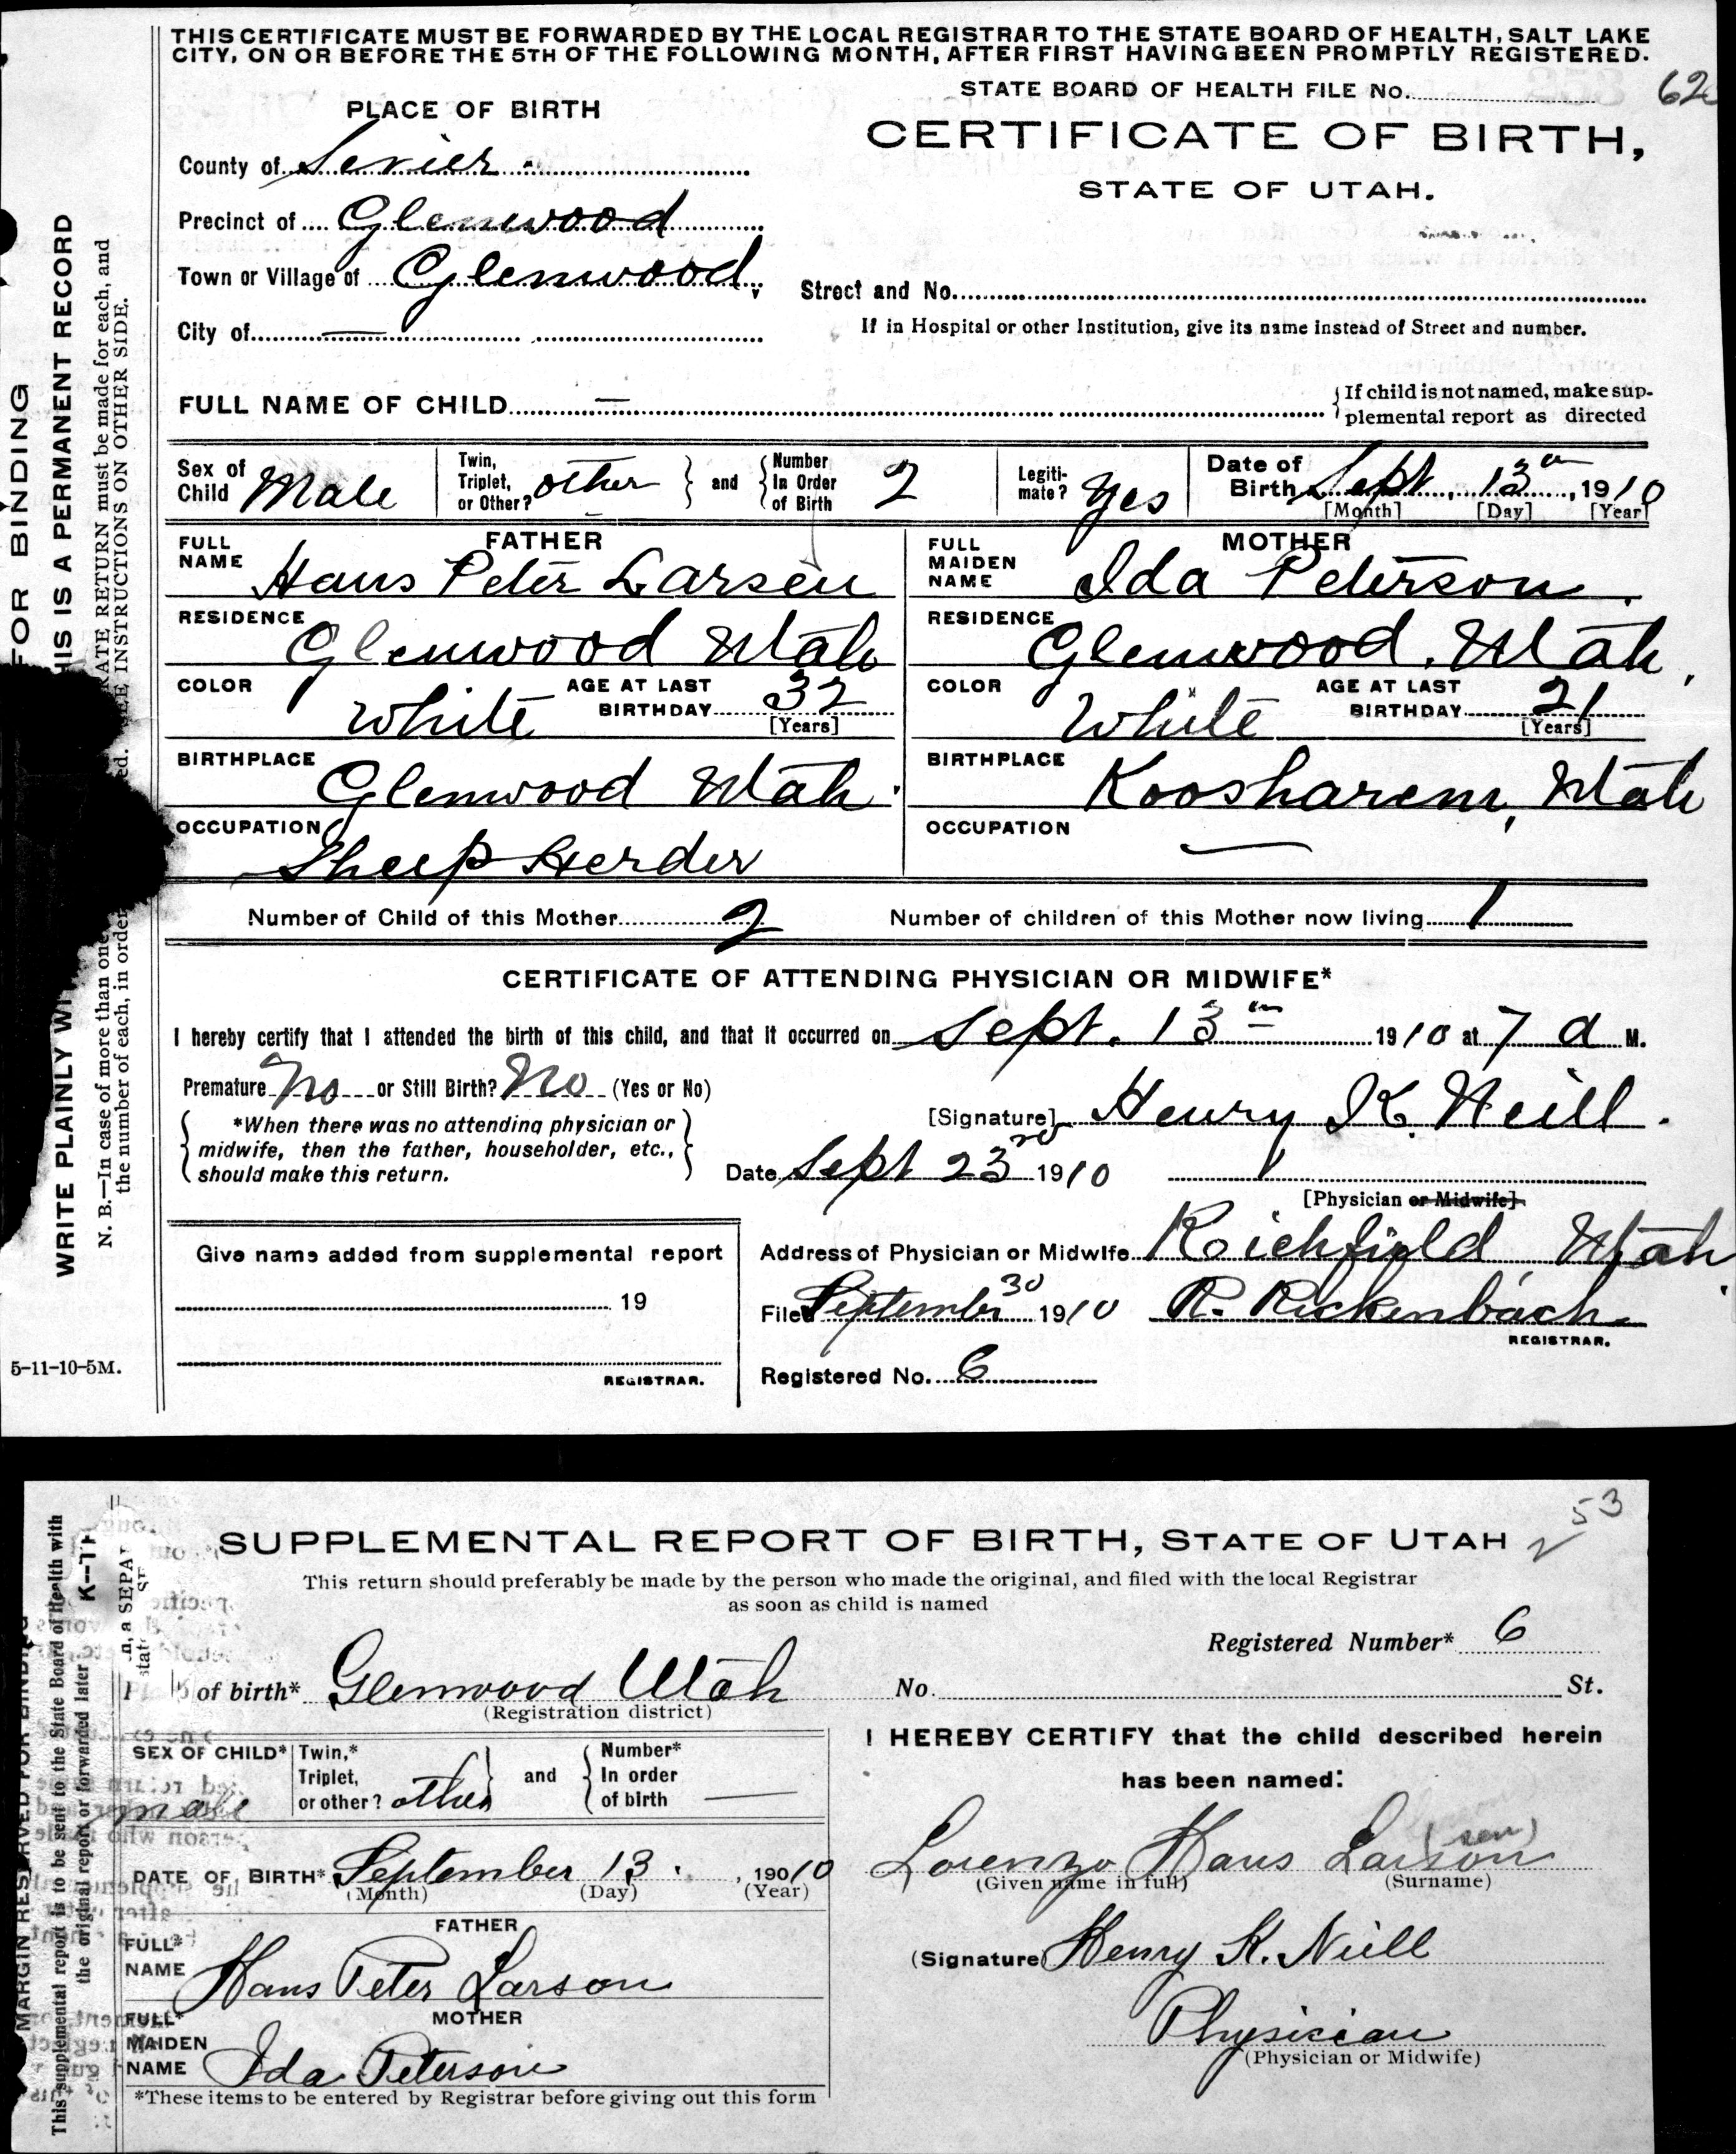 THIS CERTIFICATE MUST BE FORWARDED BY THE LOCAL REGISTRAR TO THE STATE BOARD OF HEALTH, SALT LAKE
CITY, ON OR BEFORE THE 5TH OF THE FOLLOWING MONTH, AFTER FIRST HAVING BEEN PROMPTLY REGISTERED.
STATE BOARD OF HEALTH FILE No.
PLACE OF BIRTH
CERTIFICATE OF BIRTH,
STATE OF UTAH.
County of Sevier
Precinct of Glenwood
Town or Village of Glenwood
Street and No.
City of —
If in Hospital or other Institution, give its name instead of Street and number.
FULL NAME OF CHILD —
If child is not named, make sup-
plemental report as directed
Sex of Child Male
Twin, Triplet, or Other? other
and Number In Order of Birth 2
Legiti-mate? yes
Date of Birth Sept. 13th, 1910
[Month] [Day] [Year]
FATHER
FULL NAME Hans Peter Larsen
RESIDENCE Glenwood Utah
COLOR White AGE AT LAST BIRTHDAY 32 [Years]
BIRTHPLACE Glenwood Utah
OCCUPATION Sheep Herder
MOTHER
FULL MAIDEN NAME Ida Peterson
RESIDENCE Glenwood, Utah
COLOR White AGE AT LAST BIRTHDAY 21 [Years]
BIRTHPLACE Koosharem, Utah
OCCUPATION —
Number of Child of this Mother 2 Number of children of this Mother now living 1
CERTIFICATE OF ATTENDING PHYSICIAN OR MIDWIFE*
I hereby certify that I attended the birth of this child, and that it occurred on Sept. 13th 1910 at 7 a M.
Premature No or Still Birth? No (Yes or No)
*When there was no attending physician or
midwife, then the father, householder, etc.,
should make this return.
[Signature] Henry K. Neill.
Date Sept 23rd 1910
[Physician or Midwife]
Give name added from supplemental report
19
REGISTRAR.
Address of Physician or Midwife Richfield, Utah
Filed September 30 1910 R. Rickenbach
REGISTRAR.
Registered No. 6
5-11-10-5M.
FOR BINDING
HIS IS A PERMANENT RECORD
WRITE PLAINLY WI
N. B.—In case of more than one
RATE RETURN must be made for each, and
the number of each, in order
ed. SEE INSTRUCTIONS ON OTHER SIDE.
53
SUPPLEMENTAL REPORT OF BIRTH, STATE OF UTAH
This return should preferably be made by the person who made the original, and filed with the local Registrar
as soon as child is named
Registered Number* 6
of birth* Glenwood Utah
(Registration district)
No. St.
SEX OF CHILD* male
Twin,* Triplet, or other? other
and Number* In order of birth —
DATE OF BIRTH* September 13. , 19010
(Month) (Day) (Year)
FATHER
FULL* NAME Hans Peter Larson
MOTHER
FULL* MAIDEN NAME Ida Peterson
*These items to be entered by Registrar before giving out this form
I HEREBY CERTIFY that the child described herein
has been named:
(sen)
Lorenzo Hans Larson
(Given name in full) (Surname)
(Signature) Henry K. Neill
Physician
(Physician or Midwife)
MARGIN RESERVED FOR BINDING
This supplemental report is to be sent to the State Board of Health with
the original report or forwarded later K—17
n, a SEPA